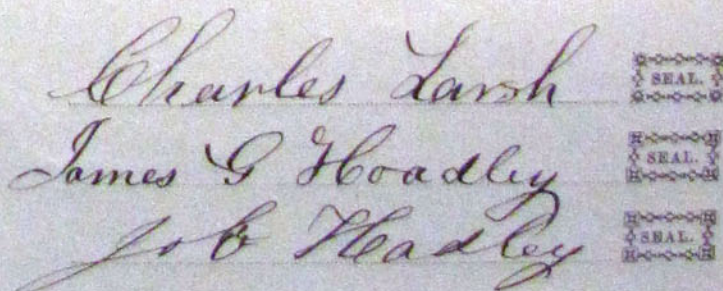 Charles Larsh SEAL.
James G Hoadley SEAL.
Job Hadley SEAL.